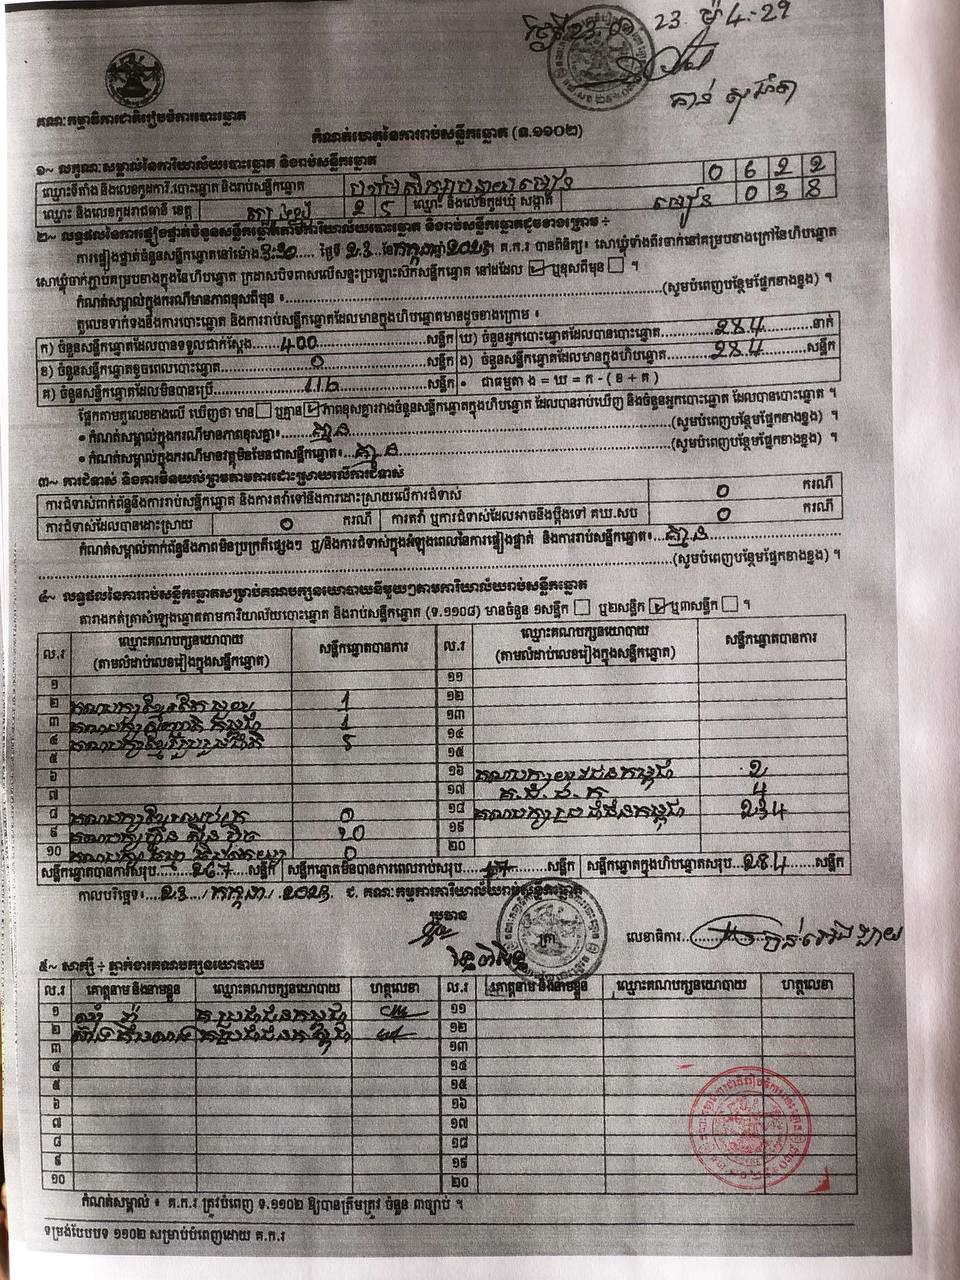 23
គណៈកម្មាធិការជាតិរៀបចំការបោះឆ្នោត
កំណត់ហេតុនៃការរាប់សន្លឹកឆ្នោត (ទ.១១០២)
១~ លក្ខណៈសម្គាល់នៃការិយាល័យបោះឆ្នោត និងរាប់សន្លឹកឆ្នោត
ឈ្មោះទីតាំង និងលេខកូដការិ.បោះឆ្នោត និងរាប់សន្លឹកឆ្នោត ០ ៦ ២ ២
ឈ្មោះ និងលេខកូដរាជធានី ខេត្ត ២ ៥ ឈ្មោះ និងលេខកូដឃុំ សង្កាត់ ០
២~ លទ្ធផលនៃការផ្ទៀងផ្ទាត់ចំនួនសន្លឹកឆ្នោតនៅការិយាល័យបោះឆ្នោត និងរាប់សន្លឹកឆ្នោតដូចខាងក្រោម ÷
ការផ្ទៀងផ្ទាត់ចំនួនសន្លឹកឆ្នោតនៅម៉ោង ថ្ងៃទី ២៣ ខែកក្កដាឆ្នាំ២០២៣ គ.ក.រ បានពិនិត្យ សោឃ្លុំទាំងពីរចាក់នៅគម្របខាងក្រៅនៃហិបឆ្នោត
សោឃ្លុំចាក់ភ្ជាប់គម្របខាងក្នុងនៃហិបឆ្នោត ក្រដាសបិទពាសលើសន្ទះប្រឡោះស៊កសន្លឹកឆ្នោត នៅដដែល ឬខុសពីមុន ។
កំណត់សម្គាល់ក្នុងករណីមានភាពខុសពីមុន ៖ (សូមបំពេញបន្ថែមផ្នែកខាងខ្នង) ។
តួលេខទាក់ទងនឹងការបោះឆ្នោត និងការរាប់សន្លឹកឆ្នោតដែលមានក្នុងហិបឆ្នោតមានដូចខាងក្រោម ៖
ក) ចំនួនសន្លឹកឆ្នោតដែលបានទទួលជាក់ស្តែង 400 សន្លឹក ឃ) ចំនួនអ្នកបោះឆ្នោតដែលបានបោះឆ្នោត 284 នាក់
ខ) ចំនួនសន្លឹកឆ្នោតខូចពេលបោះឆ្នោត 0 សន្លឹក ង) ចំនួនសន្លឹកឆ្នោតដែលមានក្នុងហិបឆ្នោត 284 សន្លឹក
គ) ចំនួនសន្លឹកឆ្នោតដែលមិនបានប្រើ 116 សន្លឹក • ជាធម្មតា ង = ឃ = ក - ( ខ + គ )
ផ្អែកតាមតួលេខខាងលើ ឃើញថា មាន ឬគ្មាន ភាពខុសគ្នារវាងចំនួនសន្លឹកឆ្នោតក្នុងហិបឆ្នោត ដែលបានរាប់ឃើញ និងចំនួនអ្នកបោះឆ្នោត ដែលបានបោះឆ្នោត ។
• កំណត់សម្គាល់ក្នុងករណីមានភាពខុសគ្នា៖ គ្មាន (សូមបំពេញបន្ថែមផ្នែកខាងខ្នង) ។
• កំណត់សម្គាល់ក្នុងករណីមានវត្ថុមិនមែនជាសន្លឹកឆ្នោត៖ គ្មាន (សូមបំពេញបន្ថែមផ្នែកខាងខ្នង) ។
៣~ ការជំទាស់ និងការមិនយល់ព្រមតាមការដោះស្រាយលើការជំទាស់
ការជំទាស់ពាក់ព័ន្ធនឹងការរាប់សន្លឹកឆ្នោត និងការតវ៉ាទៅនឹងការដោះស្រាយលើការជំទាស់ 0 ករណី
ការជំទាស់ដែលបានដោះស្រាយ 0 ករណី ការតវ៉ា ឬការជំទាស់ដែលអាចនឹងប្តឹងទៅ គឃ.សប 0 ករណី
កំណត់សម្គាល់ពាក់ព័ន្ធនឹងភាពមិនប្រក្រតីផ្សេងៗ ឬ/និងការជំទាស់ក្នុងអំឡុងពេលនៃការផ្ទៀងផ្ទាត់ និងការរាប់សន្លឹកឆ្នោត៖ គ្មាន
(សូមបំពេញបន្ថែមផ្នែកខាងខ្នង) ។
៤~ លទ្ធផលនៃការរាប់សន្លឹកឆ្នោតសម្រាប់គណបក្សនយោបាយនីមួយៗតាមការិយាល័យរាប់សន្លឹកឆ្នោត
តារាងកត់ត្រាសំឡេងឆ្នោតតាមការិយាល័យបោះឆ្នោត និងរាប់សន្លឹកឆ្នោត (ទ.១១០៨) មានចំនួន ១សន្លឹក ឬ២សន្លឹក ឬ៣សន្លឹក ។
ល.រ ឈ្មោះគណបក្សនយោបាយ (តាមលំដាប់លេខរៀងក្នុងសន្លឹកឆ្នោត) សន្លឹកឆ្នោតបានការ ល.រ ឈ្មោះគណបក្សនយោបាយ (តាមលំដាប់លេខរៀងក្នុងសន្លឹកឆ្នោត) សន្លឹកឆ្នោតបានការ
១ ១១
២ 1 ១២
៣ 1 ១៣
៤ 5 ១៤
៥ ១៥
៦ ១៦ 2
៧ ១៧ 4
៨ 0 ១៨ គណបក្សប្រជាជនកម្ពុជា 234
៩ 20 ១៩
១០ 0 ២០
សន្លឹកឆ្នោតបានការសរុប 267 សន្លឹក សន្លឹកឆ្នោតមិនបានការពេលរាប់សរុប 17 សន្លឹក សន្លឹកឆ្នោតក្នុងហិបឆ្នោតសរុប 284 សន្លឹក
កាលបរិច្ឆេទ៖ ២៣ / កក្កដា / ២០២៣ ជ. គណៈកម្មការការិយាល័យរាប់សន្លឹកឆ្នោត
ប្រធាន
លេខាធិការ
៥~ សាក្សី ÷ ភ្នាក់ងារគណបក្សនយោបាយ
ល.រ គោត្តនាម និងនាមខ្លួន ឈ្មោះគណបក្សនយោបាយ ហត្ថលេខា ល.រ គោត្តនាម និងនាមខ្លួន ឈ្មោះគណបក្សនយោបាយ ហត្ថលេខា
១ គ ប្រជាជនកម្ពុជា ១១
២ គ ប្រជាជនកម្ពុជា ១២
៣ ១៣
៤ ១៤
៥ ១៥
៦ ១៦
៧ ១៧
៨ ១៨
៩ ១៩
១០ ២០
កំណត់សម្គាល់ ៖ គ.ក.រ ត្រូវបំពេញ ទ.១១០២ ឱ្យបានត្រឹមត្រូវ ចំនួន ៣ច្បាប់ ។
ទម្រង់បែបបទ ១១០២ សម្រាប់បំពេញដោយ គ.ក.រ